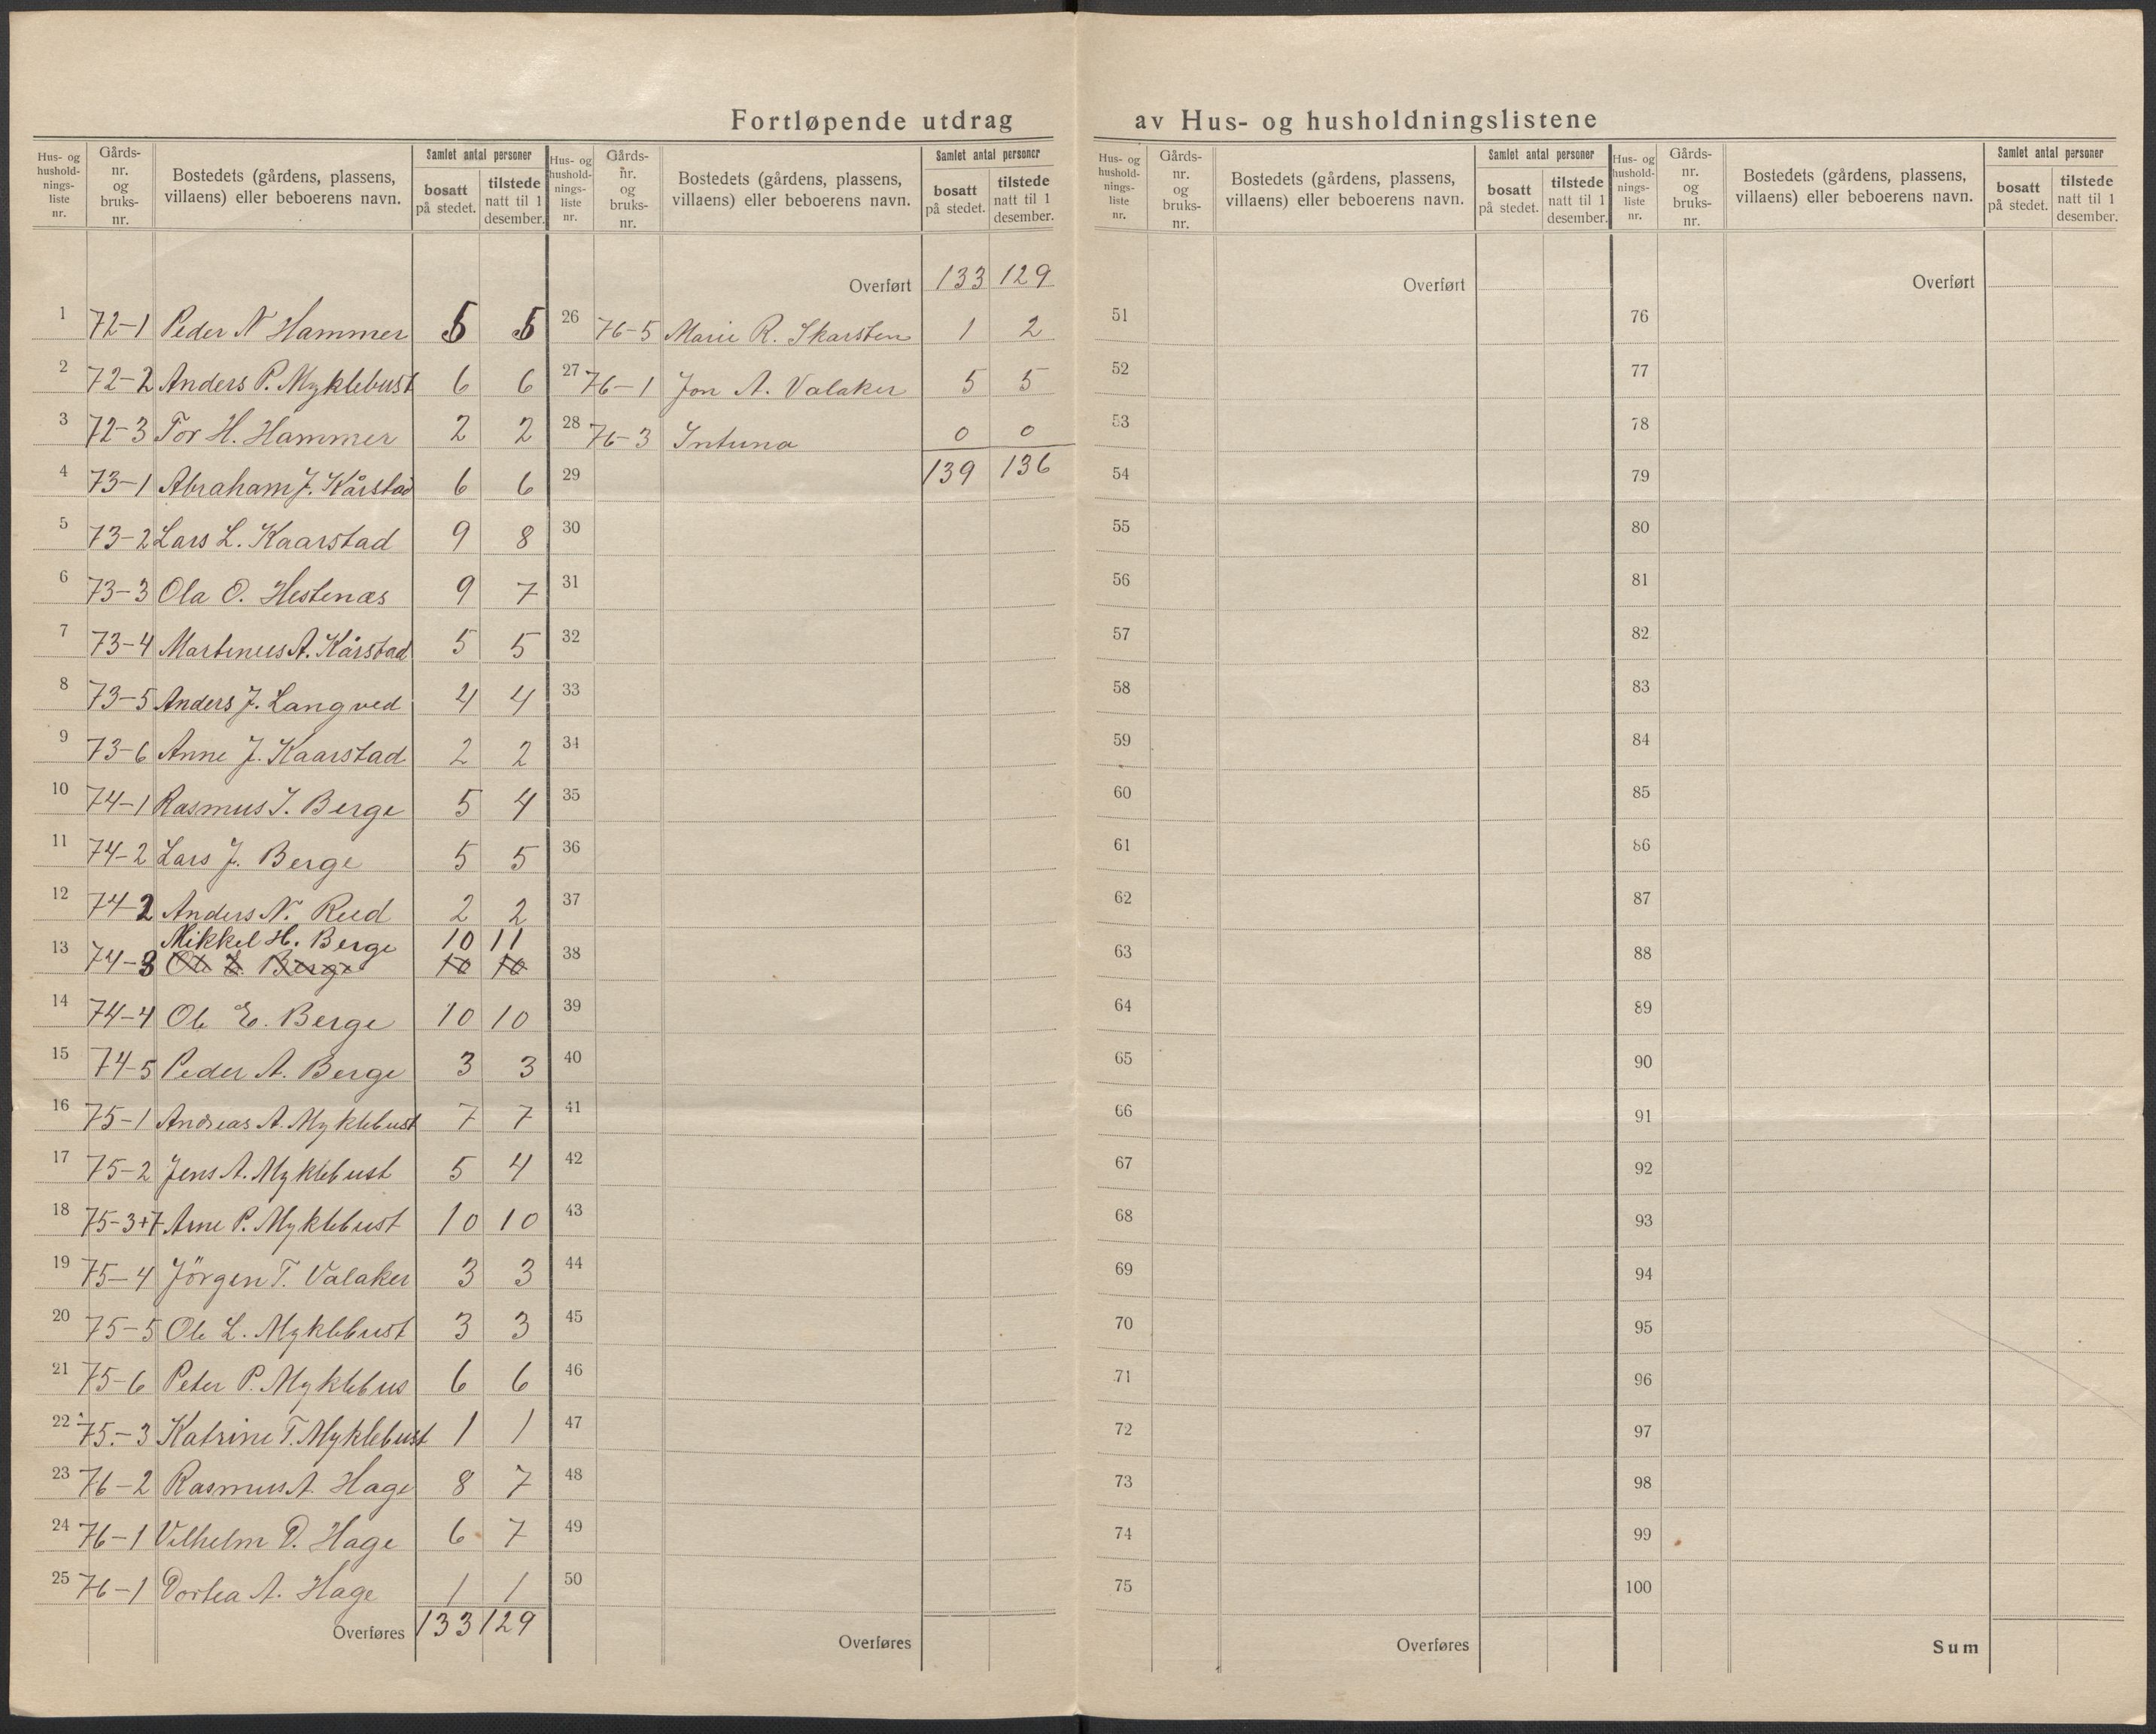 Fortløpende utdrag av Hus- og husholdningslistene
Hus- og hushold-nings-liste nr. Gårds-nr. og bruks-nr. Bostedets (gårdens, plassens, villaens) eller beboerens navn. Samlet antal personer bosatt på stedet. tilstede natt til 1 desember.
1 72-1 Peder N Hammer 5 5
2 72-2 Anders P. Myklebust 6 6
3 72-3 Tor H. Hammer 2 2
4 73-1 Abraham J. Kårstad 6 6
5 73-2 Lars L. Kaarstad 9 8
6 73-3 Ola O. Hestenæs 9 7
7 73-4 Martinus A. Kårstad 5 5
8 73-5 Anders J. Langved 4 4
9 73-6 Anne J. Kaarstad 2 2
10 74-1 Rasmus J. Berge 5 4
11 74-2 Lars J. Berge 5 5
12 74-2 Anders N. Reed 2 2
Mikkel H. Berge 10 11
13 74-3 Ole E. Berge 10 10
14 74-4 Ole E. Berge 10 10
15 74-5 Peder A. Berge 3 3
16 75-1 Andreas A. Myklebust 7 7
17 75-2 Jens A. Myklebust 5 4
18 75-3+7 Arne P. Myklebust 10 10
19 75-4 Jörgen T. Valaker 3 3
20 75-5 Ole L. Myklebust 3 3
21 75-6 Peter P. Myklebus 6 6
22 75.-3 Katrine T. Myklebust 1 1
23 76-2 Rasmus A. Hage 8 7
24 76-1 Vilhelm D. Hage 6 7
25 76-1 Dortea A. Hage 1 1
Overføres 133 129
Hus- og hushold-nings-liste nr. Gårds-nr. og bruks-nr. Bostedets (gårdens, plassens, villaens) eller beboerens navn. Samlet antal personer bosatt på stedet. tilstede natt til 1 desember.
Overført 133 129
26 76-5 Marie R. Skarsten 1 2
27 76-1 Jon A. Valaker 5 5
28 76-3 Intuna 0 0
29 139 136
30
31
32
33
34
35
36
37
38
39
40
41
42
43
44
45
46
47
48
49
50
Overføres
Hus- og hushold-nings-liste nr. Gårds-nr. og bruks-nr. Bostedets (gårdens, plassens, villaens) eller beboerens navn. Samlet antal personer bosatt på stedet. tilstede natt til 1 desember.
Overført
51
52
53
54
55
56
57
58
59
60
61
62
63
64
65
66
67
68
69
70
71
72
73
74
75
Overføres
Hus- og hushold-nings-liste nr. Gårds-nr. og bruks-nr. Bostedets (gårdens, plassens, villaens) eller beboerens navn. Samlet antal personer bosatt på stedet. tilstede natt til 1 desember.
Overført
76
77
78
79
80
81
82
83
84
85
86
87
88
89
90
91
92
93
94
95
96
97
98
99
100
Sum